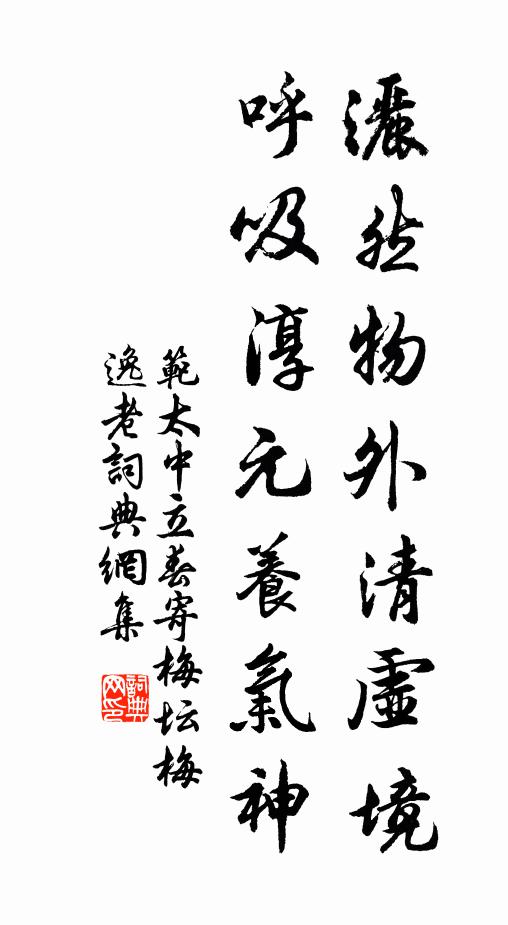 灑然物外清虛境
呼吸淳元養氣神
範太中立春寄梅坛梅
逸老詞典網集
詞典网印